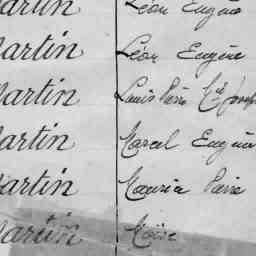 Martin Léon Eugène
Martin Léon Eugène
Martin Louis Pierre Joseph
Martin Marcel Eugène
Martin Maurice Pierre
Martin